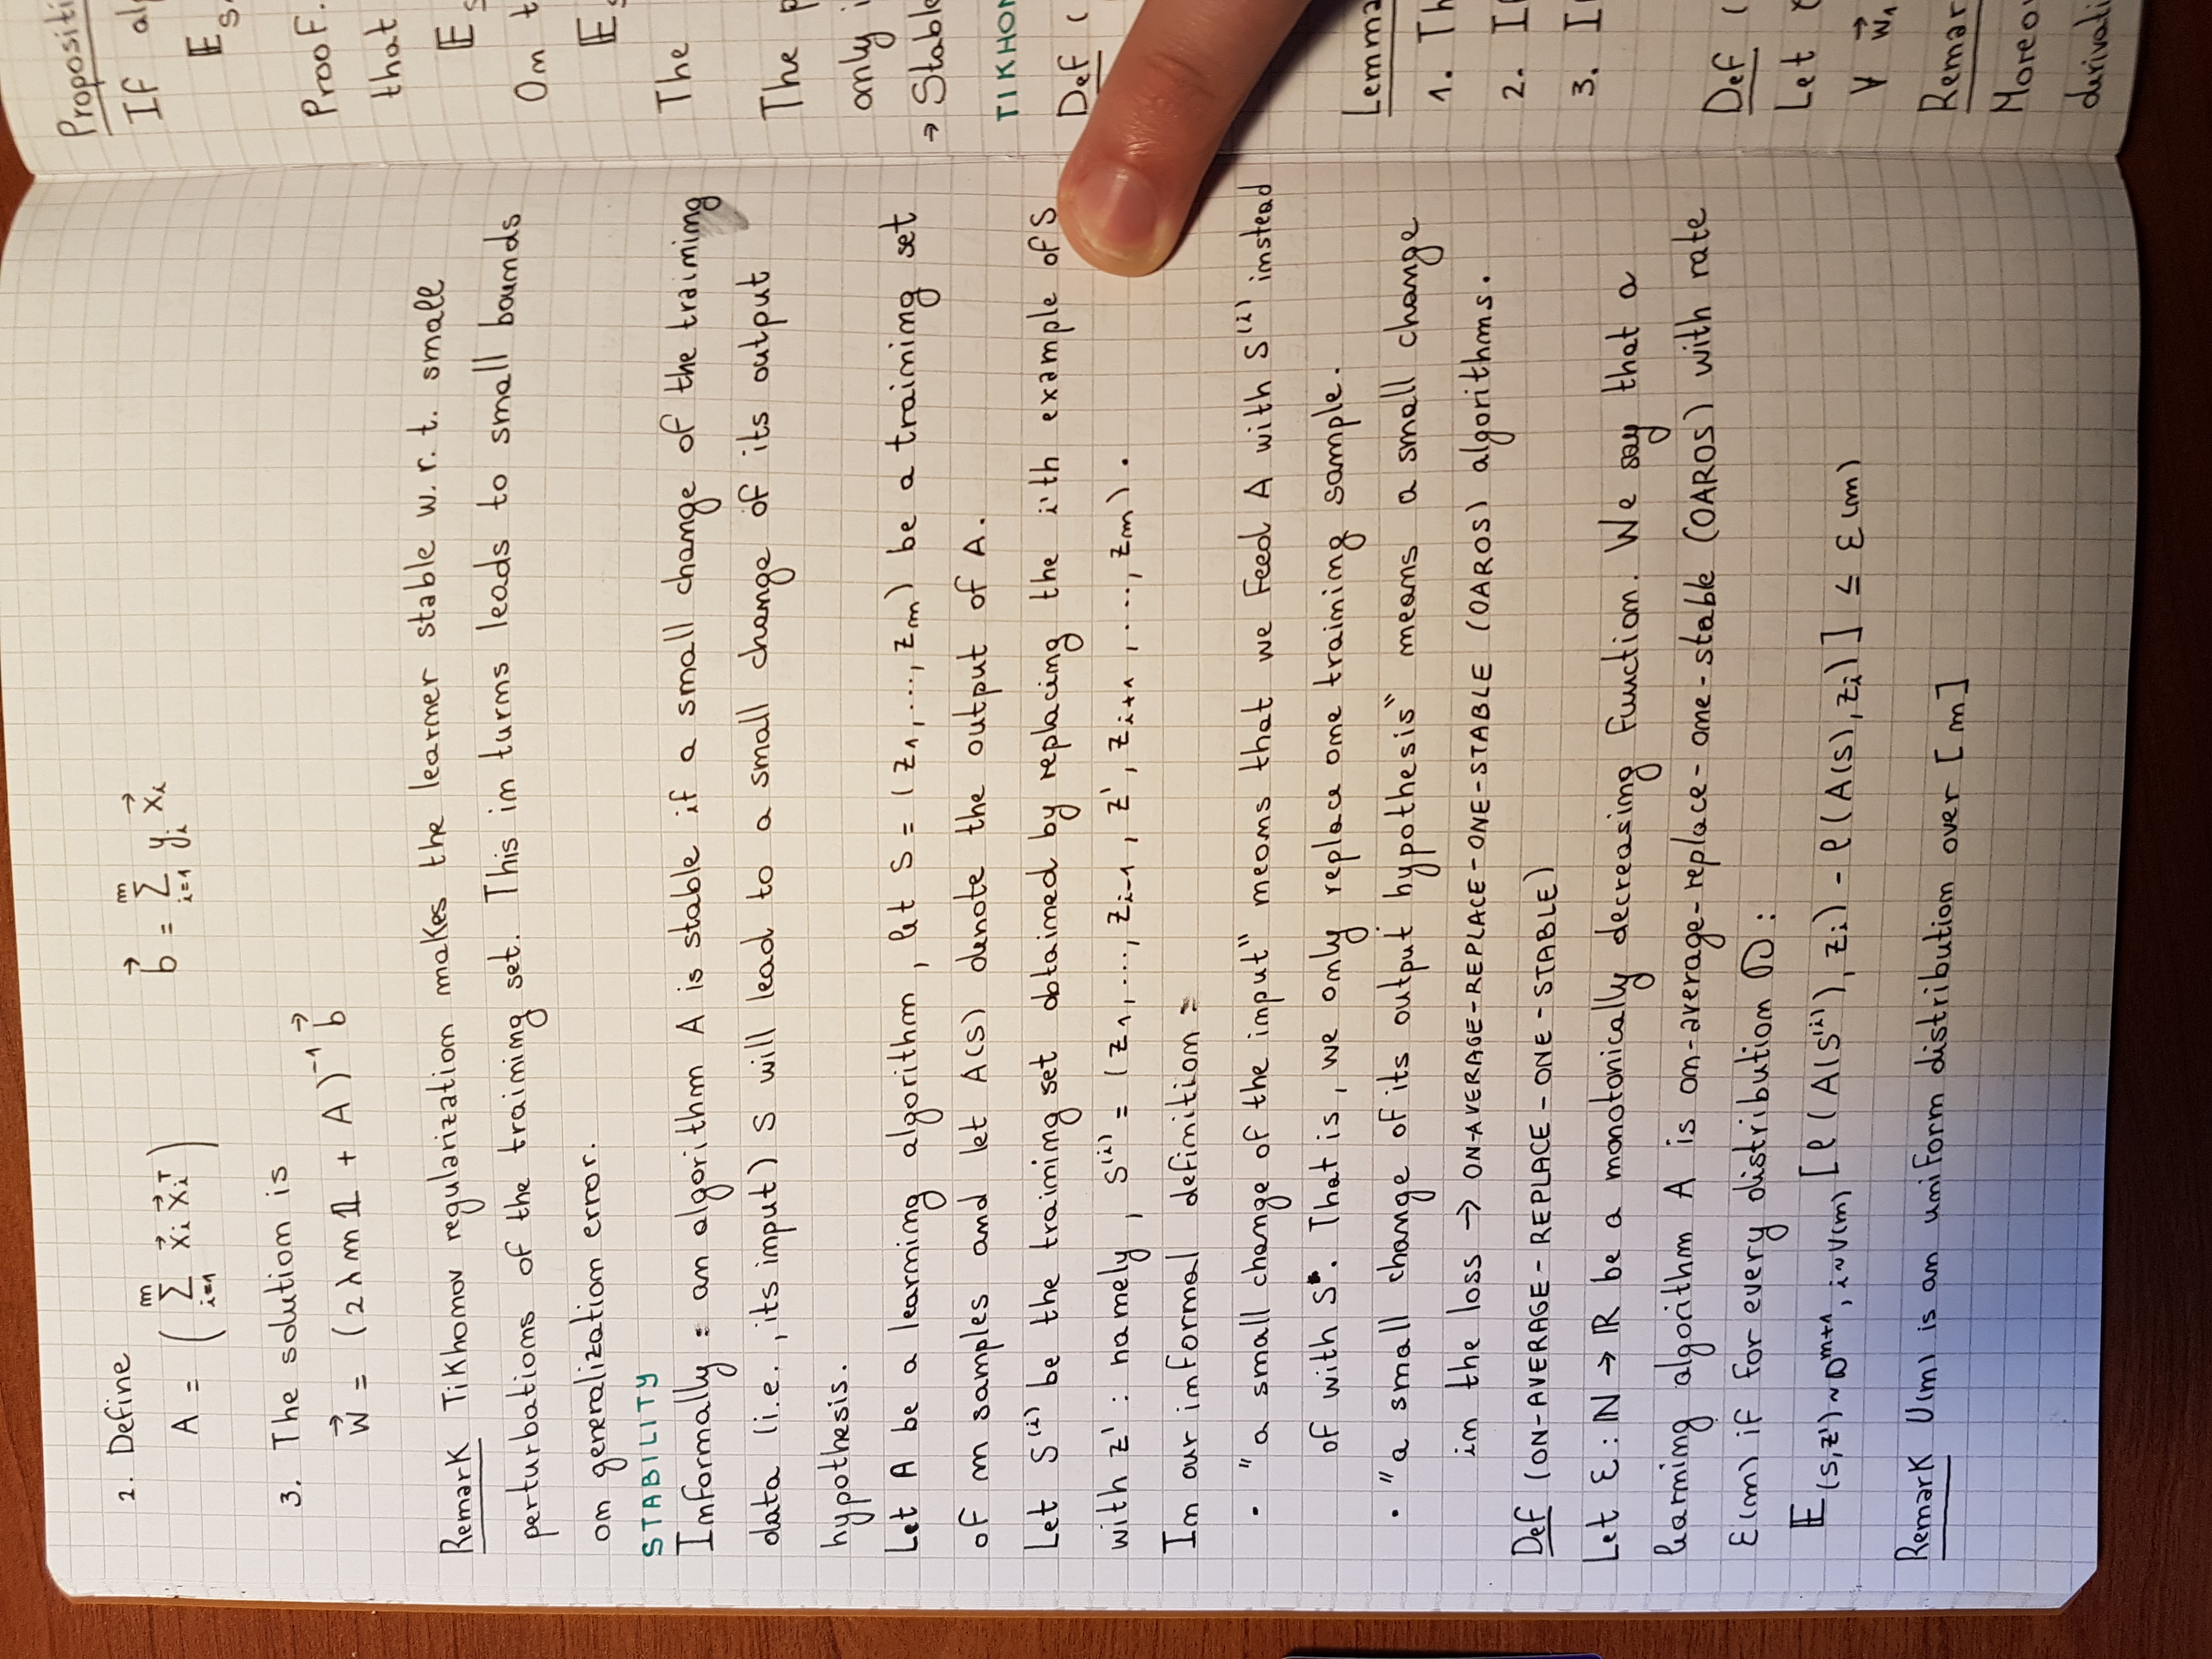 2. Define
A = ( Σ_{i=1}^{m} x⃗_i x⃗_i^T )    b⃗ = Σ_{i=1}^{m} y_i x⃗_i
3. The solution is
w⃗ = (2λm𝟙 + A)^{-1} b⃗
Remark Tikhonov regularization makes the learner stable w.r.t. small
perturbations of the training set. This in turns leads to small bounds
on generalization error.
STABILITY
Informally: an algorithm A is stable if a small change of the training
data (i.e., its input) S will lead to a small change of its output
hypothesis.
Let A be a learning algorithm, let S = (z_1, ..., z_m) be a training set
of m samples and let A(S) denote the output of A.
Let S^{(i)} be the training set obtained by replacing the i'th example of S
with z': namely, S^{(i)} = (z_1, ..., z_{i-1}, z', z_{i+1}, ..., z_m).
In our informal definition:
• "a small change of the input" means that we feed A with S^{(i)} instead
of with S. That is, we only replace one training sample.
• "a small change of its output hypothesis" means a small change
in the loss → ON-AVERAGE-REPLACE-ONE-STABLE (OAROS) algorithms.
Def (ON-AVERAGE-REPLACE-ONE-STABLE)
Let ε: ℕ → ℝ be a monotonically decreasing function. We say that a
learning algorithm A is on-average-replace-one-stable (OAROS) with rate
ε(m) if for every distribution D:
𝔼_{(S,z')~D^{m+1}, i~U(m)} [ℓ(A(S^{(i)}), z_i) - ℓ(A(S), z_i)] ≤ ε(m)
Remark U(m) is an uniform distribution over [m]
Propositi
If al
𝔼_S
Proof.
that
𝔼_S
On t
𝔼_S
The
The p
only i
→ Stable
TIKHON
Def (
Lemma
1. Th
2. I
3. I
Def (
Let
∀ w⃗_1
Remar
Moreov
derivati